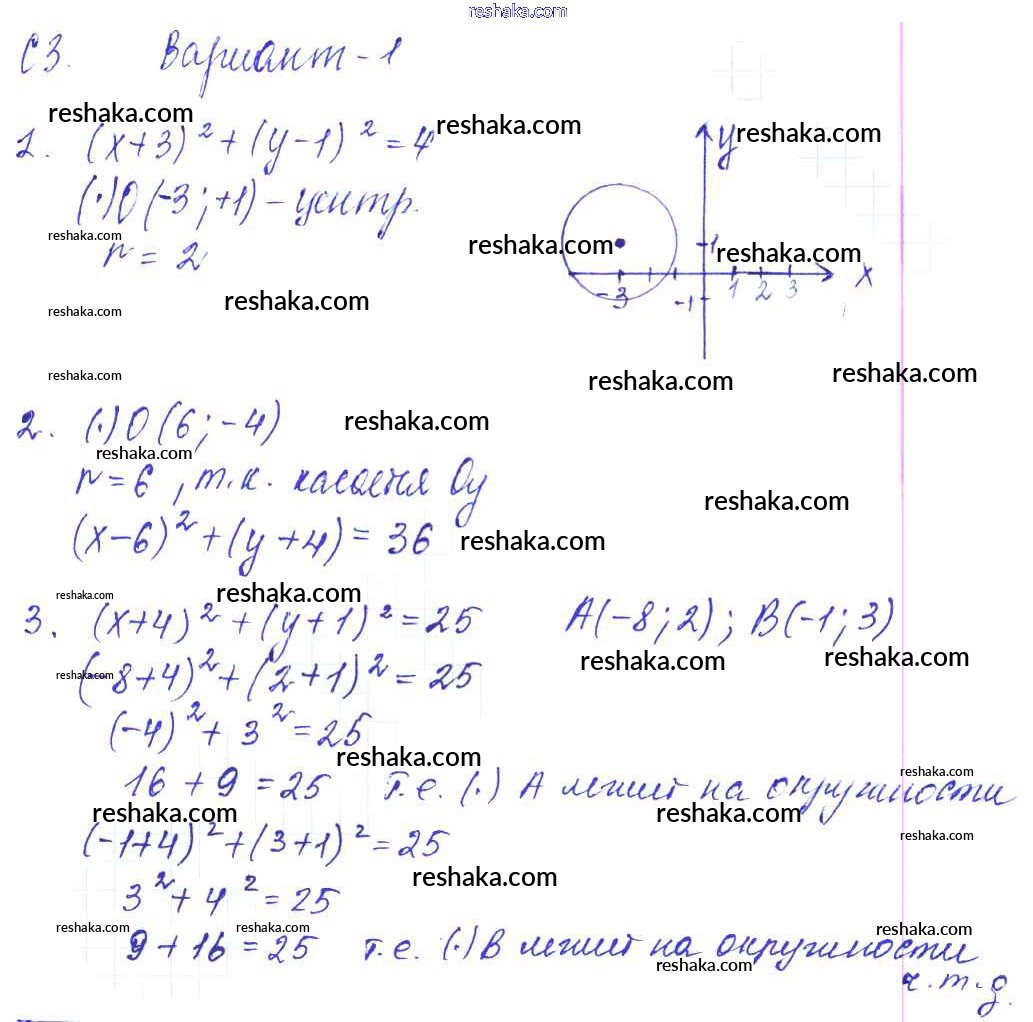 reshaka.com
С3. Вариант-1
reshaka.com
1. (x+3)² + (y-1)² = 4 reshaka.com y reshaka.com
(·) O (-3; +1) - центр.
reshaka.com r = 2 reshaka.com 1 reshaka.com
-3 -1 1 2 3 x
reshaka.com reshaka.com
reshaka.com reshaka.com reshaka.com
2. (·) O (6; -4) reshaka.com
reshaka.com
r = 6, т.к. касается Oy reshaka.com
(x-6)² + (y+4) = 36 reshaka.com
reshaka.com reshaka.com
3. (x+4)² + (y+1)² = 25 A(-8; 2); B(-1; 3)
reshaka.com reshaka.com
reshaka.com (-8+4)² + (2+1)² = 25
(-4)² + 3² = 25
reshaka.com
16 + 9 = 25 т.е. (·) A лежит на окружности reshaka.com
reshaka.com reshaka.com
(-1+4)² + (3+1)² = 25 reshaka.com
reshaka.com
3² + 4² = 25
reshaka.com reshaka.com reshaka.com
9 + 16 = 25 т.е. (·) B лежит на окружности
reshaka.com
ч.т.д.